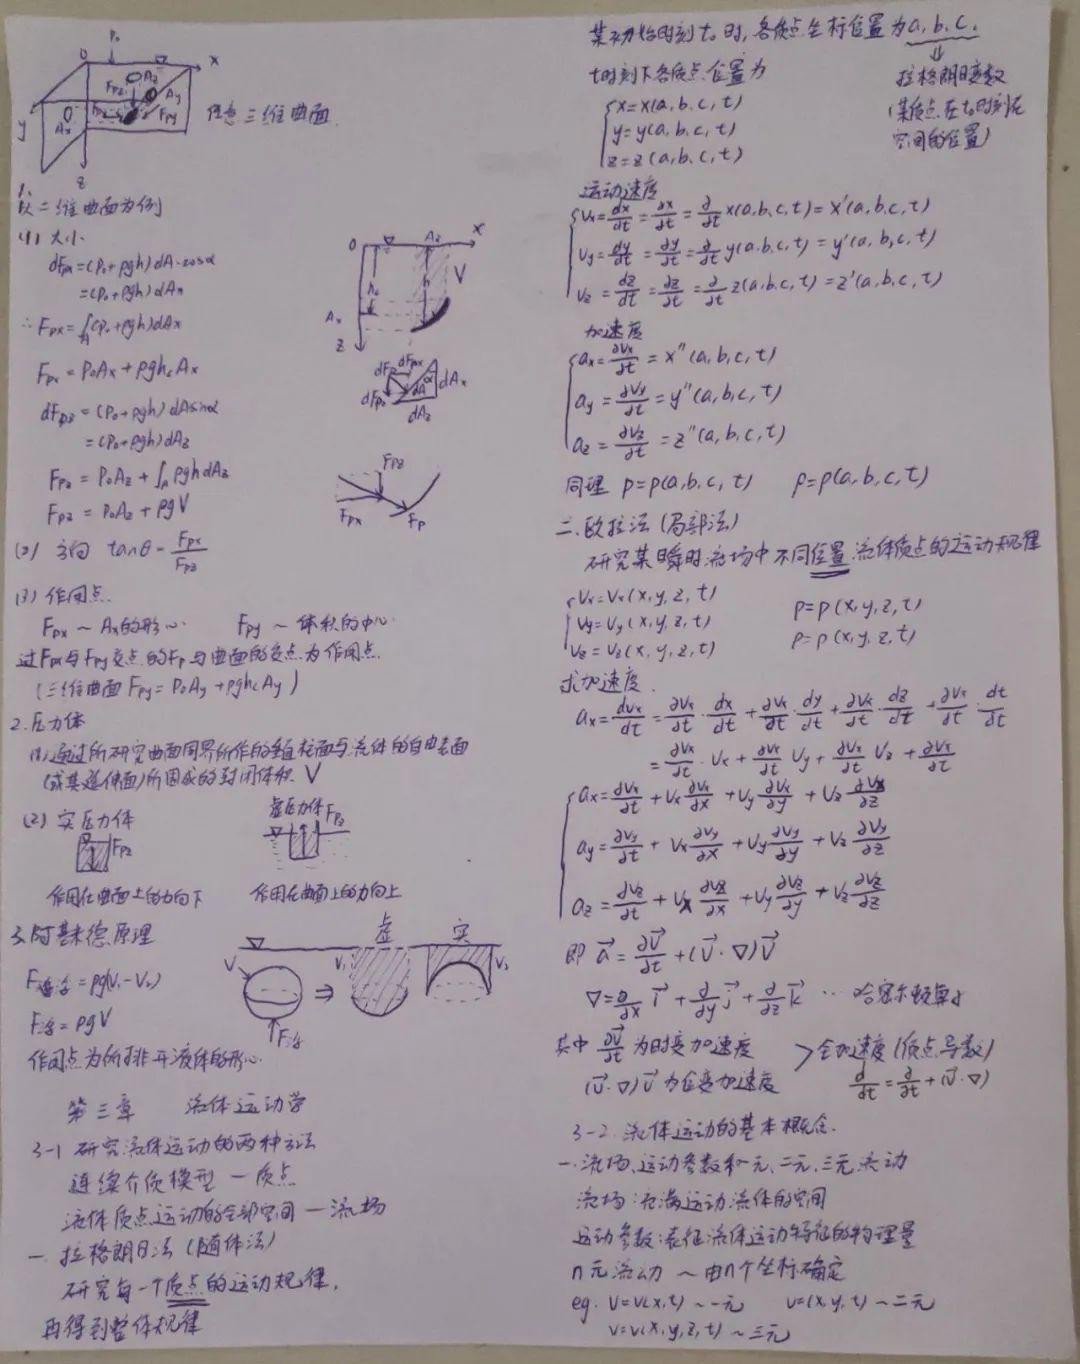 P₀
O
x
y
z
A_z
A_y
A_x
F_pz
F_py
任意三维曲面
1.
以二维曲面为例
(1) 大小
dF_px=(P₀+ρgh)dA·cosα
=(P₀+ρgh)dA_x
∴F_px=∫_A(P₀+ρgh)dA_x
F_px=P₀A_x+ρgh_cA_x
dF_pz=(P₀+ρgh)dAsinα
=(P₀+ρgh)dA_z
F_pz=P₀A_z+∫_Aρgh dA_z
F_pz=P₀A_z+ρgV
O A_z x
h_c h V
A_x
z
dF_p dF_px
dF_pz dA α dA_x
dA_z
F_pz
F_px F_p
(2) 方向 tanθ=F_px/F_pz
(3) 作用点
F_px～A_x的形心 F_py～体积的中心
过F_px与F_py交点的F_p与曲面的交点为作用点
(三维曲面F_py=P₀A_y+ρgh_cA_y)
2.压力体
(1)通过所研究曲面周界所作的垂直柱面与流体的自由表面
(或其延伸面)所围成的封闭体积 V
(2) 实压力体 虚压力体
F_pz F_pz
作用在曲面上的力向下 作用在曲面上的力向上
3.阿基米德原理
虚 实
V V₁ V₂
⇒
F浮=ρg(V₁-V₂)
F浮=ρgV
F浮
作用点为所排开液体的形心
第三章 流体运动学
3-1 研究流体运动的两种方法
连续介质模型 — 质点
流体质点运动的全部空间 — 流场
一.拉格朗日法(随体法)
研究每一个质点的运动规律,
再得到整体规律
某初始时刻t₀时,各质点坐标位置为a,b,c.
⇓
t时刻下各质点位置为
拉格朗日变数
(某质点在t₀时刻在
空间的位置)
x=x(a,b,c,t)
y=y(a,b,c,t)
z=z(a,b,c,t)
运动速度
v_x=dx/dt=∂x/∂t=∂/∂t x(a,b,c,t)=x'(a,b,c,t)
v_y=dy/dt=∂y/∂t=∂/∂t y(a,b,c,t)=y'(a,b,c,t)
v_z=dz/dt=∂z/∂t=∂/∂t z(a,b,c,t)=z'(a,b,c,t)
加速度
a_x=∂v_x/∂t=x''(a,b,c,t)
a_y=∂v_y/∂t=y''(a,b,c,t)
a_z=∂v_z/∂t=z''(a,b,c,t)
同理 p=p(a,b,c,t) ρ=ρ(a,b,c,t)
二.欧拉法(局部法)
研究某瞬时流场中不同位置流体质点的运动规律
v_x=v_x(x,y,z,t) p=p(x,y,z,t)
v_y=v_y(x,y,z,t)
v_z=v_z(x,y,z,t) ρ=ρ(x,y,z,t)
求加速度.
a_x=dv_x/dt=∂v_x/∂t·dx/dt+∂v_x/∂t·dy/dt+∂v_x/∂t·dz/dt+∂v_x/∂t·dt/dt
=∂v_x/∂t·v_x+∂v_x/∂t v_y+∂v_x/∂t v_z+∂v_x/∂t
a_x=∂v_x/∂t+v_x∂v_x/∂x+v_y∂v_x/∂y+v_z∂v_x/∂z
a_y=∂v_y/∂t+v_x∂v_y/∂x+v_y∂v_y/∂y+v_z∂v_y/∂z
a_z=∂v_z/∂t+v_x∂v_z/∂x+v_y∂v_z/∂y+v_z∂v_z/∂z
即 a⃗=∂v⃗/∂t+(v⃗·∇)v⃗
∇=∂/∂x i⃗+∂/∂y j⃗+∂/∂z k⃗ … 哈密尔顿算子
其中 ∂v⃗/∂t 为时变加速度
(v⃗·∇)v⃗为位变加速度
>全加速度(质点导数)
d/dt=∂/∂t+(v⃗·∇)
3-2.流体运动的基本概念.
一.流场、运动参数和一元、二元、三元流动
流场:充满运动流体的空间
运动参数:表征流体运动特征的物理量
n元流动 ～由n个坐标确定
eg. v=v(x,t)～一元 v=(x,y,t)～二元
v=v(x,y,z,t)～三元